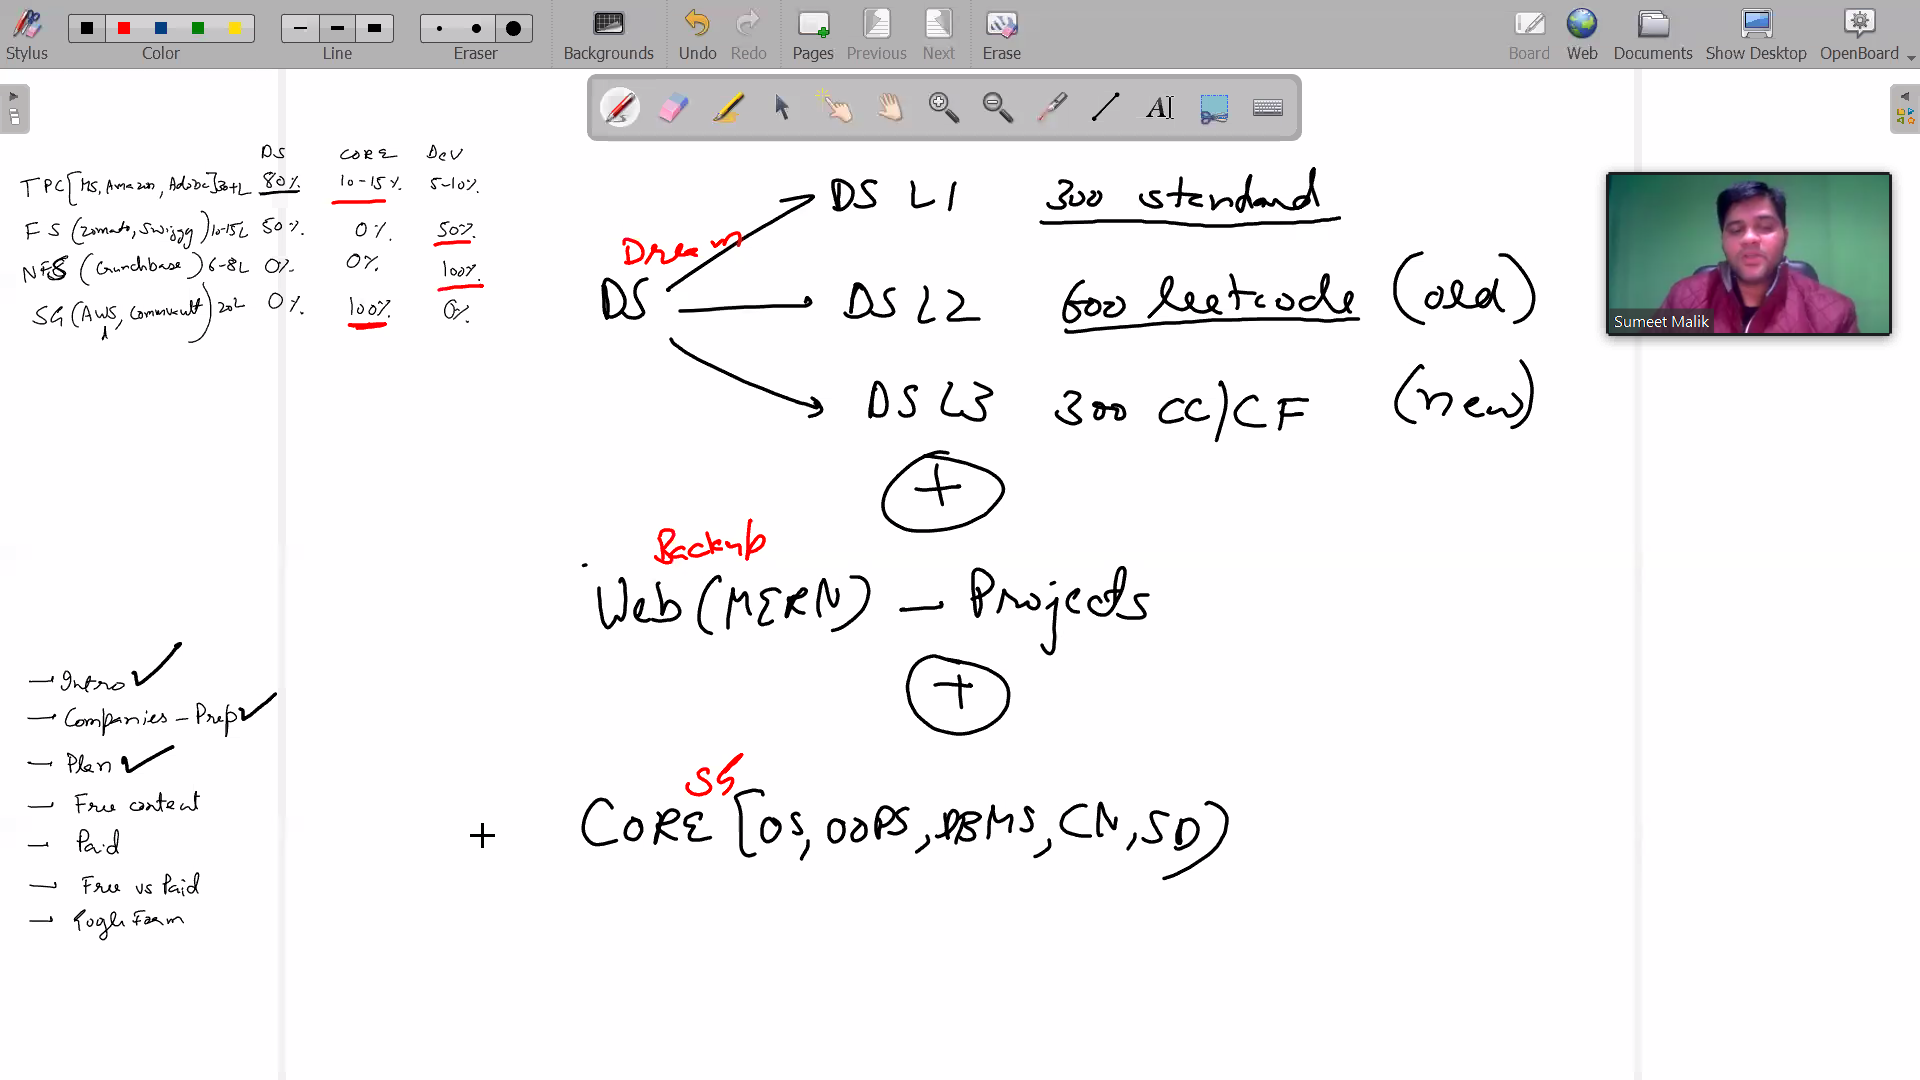 Stylus
Color
Line
Eraser
Backgrounds
Undo
Redo
Pages
Previous
Next
Erase
Board
Web
Documents
Show Desktop
OpenBoard
DS CORE Dev
TPC [MS, Amazon, Adobe] 30+L 80% 10-15% 5-10%
FS (Zomato, Swiggy) 10-15L 50% 0% 50%
NFS (Crunchbase) 6-8L 0% 0% 100%
SG (AWS, Commvault) 20L 0% 100% 0%
DS L1 300 standard
Dream
DS
DS L2 600 leetcode (old)
DS L3 300 CC/CF (new)
+
Backup
Web (MERN) – Projects
+
SG
CORE [OS, OOPS, DBMS, CN, SD)
– Intro
– Companies – Prep
– Plan
– Free content
– Paid
– Free vs Paid
Sumeet Malik